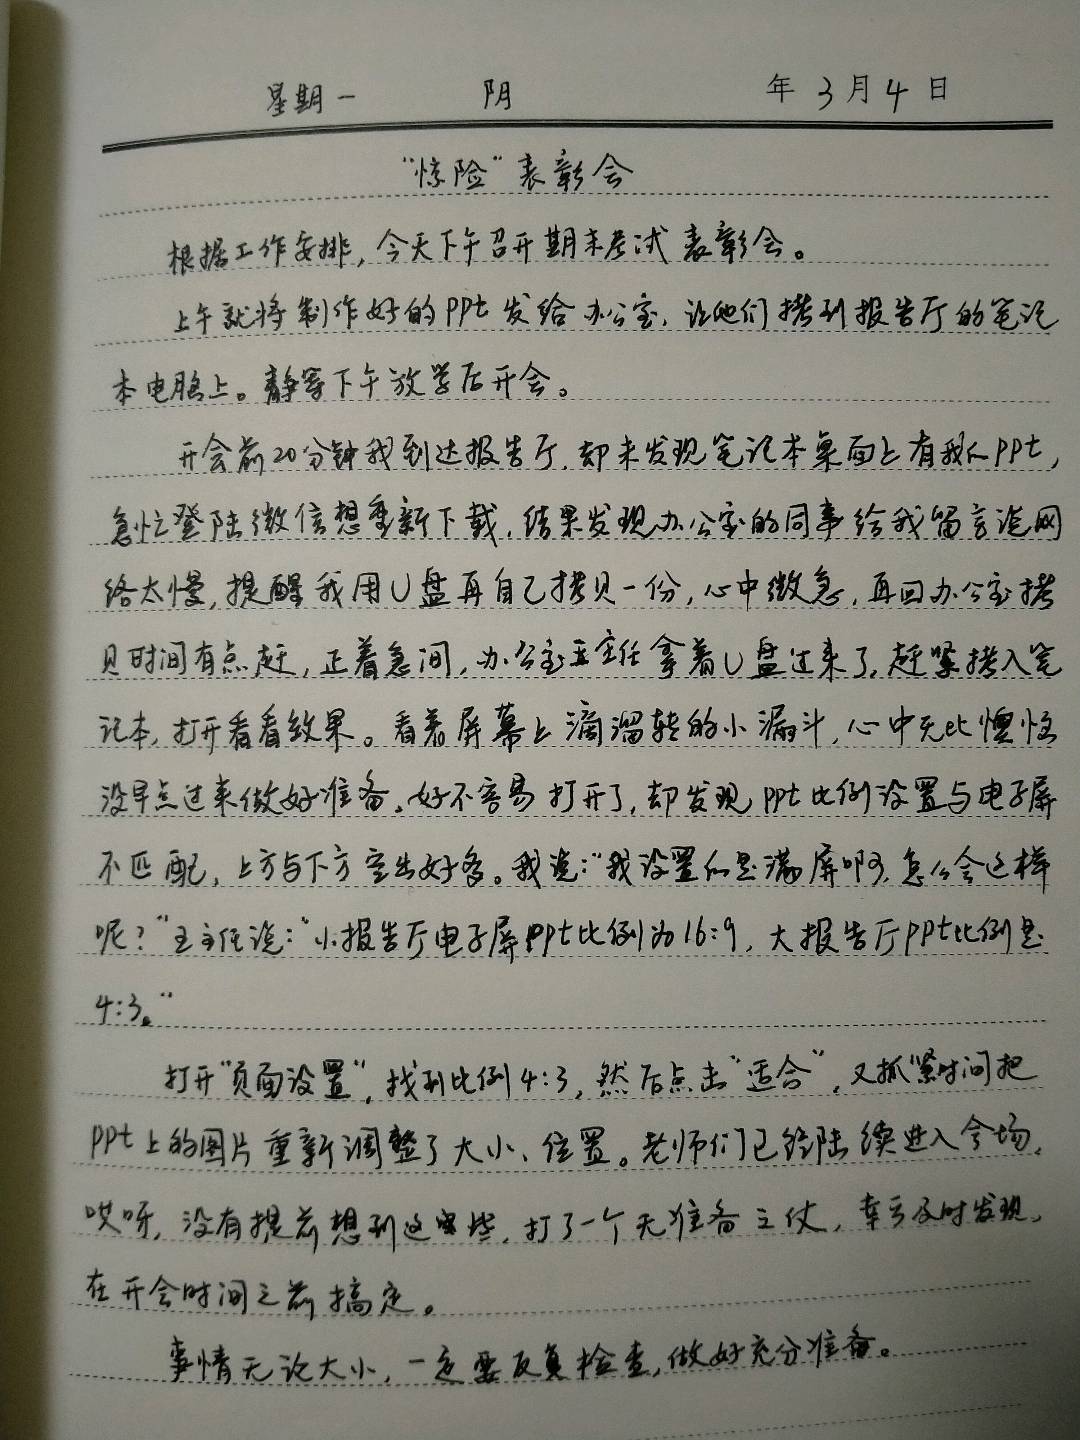 星期一 阴 年3月4日
“惊险”表彰会
根据工作安排,今天下午召开期末考试表彰会。
上午就将制作好的PPt发给办公室,让他们拷到报告厅的笔记
本电脑上。静等下午放学后开会。
开会前20分钟我到达报告厅,却未发现笔记本桌面上有我的PPt,
急忙登陆微信想重新下载,结果发现办公室的同事给我留言说网
络太慢,提醒我用U盘再自己拷贝一份,心中微急,再回办公室拷
贝时间有点赶,正着急间,办公室王主任拿着U盘过来了,赶紧拷入笔
记本,打开看看效果。看着屏幕上滴溜转的小漏斗,心中无比懊恼
没早点过来做好准备。好不容易打开了,却发现PPt比例设置与电子屏
不匹配,上方与下方空出好多。我说:“我设置的是满屏啊,怎么会这样
呢?”王主任说:“小报告厅电子屏PPt比例为16:9,大报告厅PPt比例是
4:3。”
打开“页面设置”,找到比例4:3,然后点击“适合”,又抓紧时间把
PPt上的图片重新调整了大小、位置。老师们已经陆续进入会场,
哎呀,没有提前想到这些,打了一个无准备之仗,幸亏及时发现,
在开会时间之前搞定。
事情无论大小,一定要反复检查,做好充分准备。